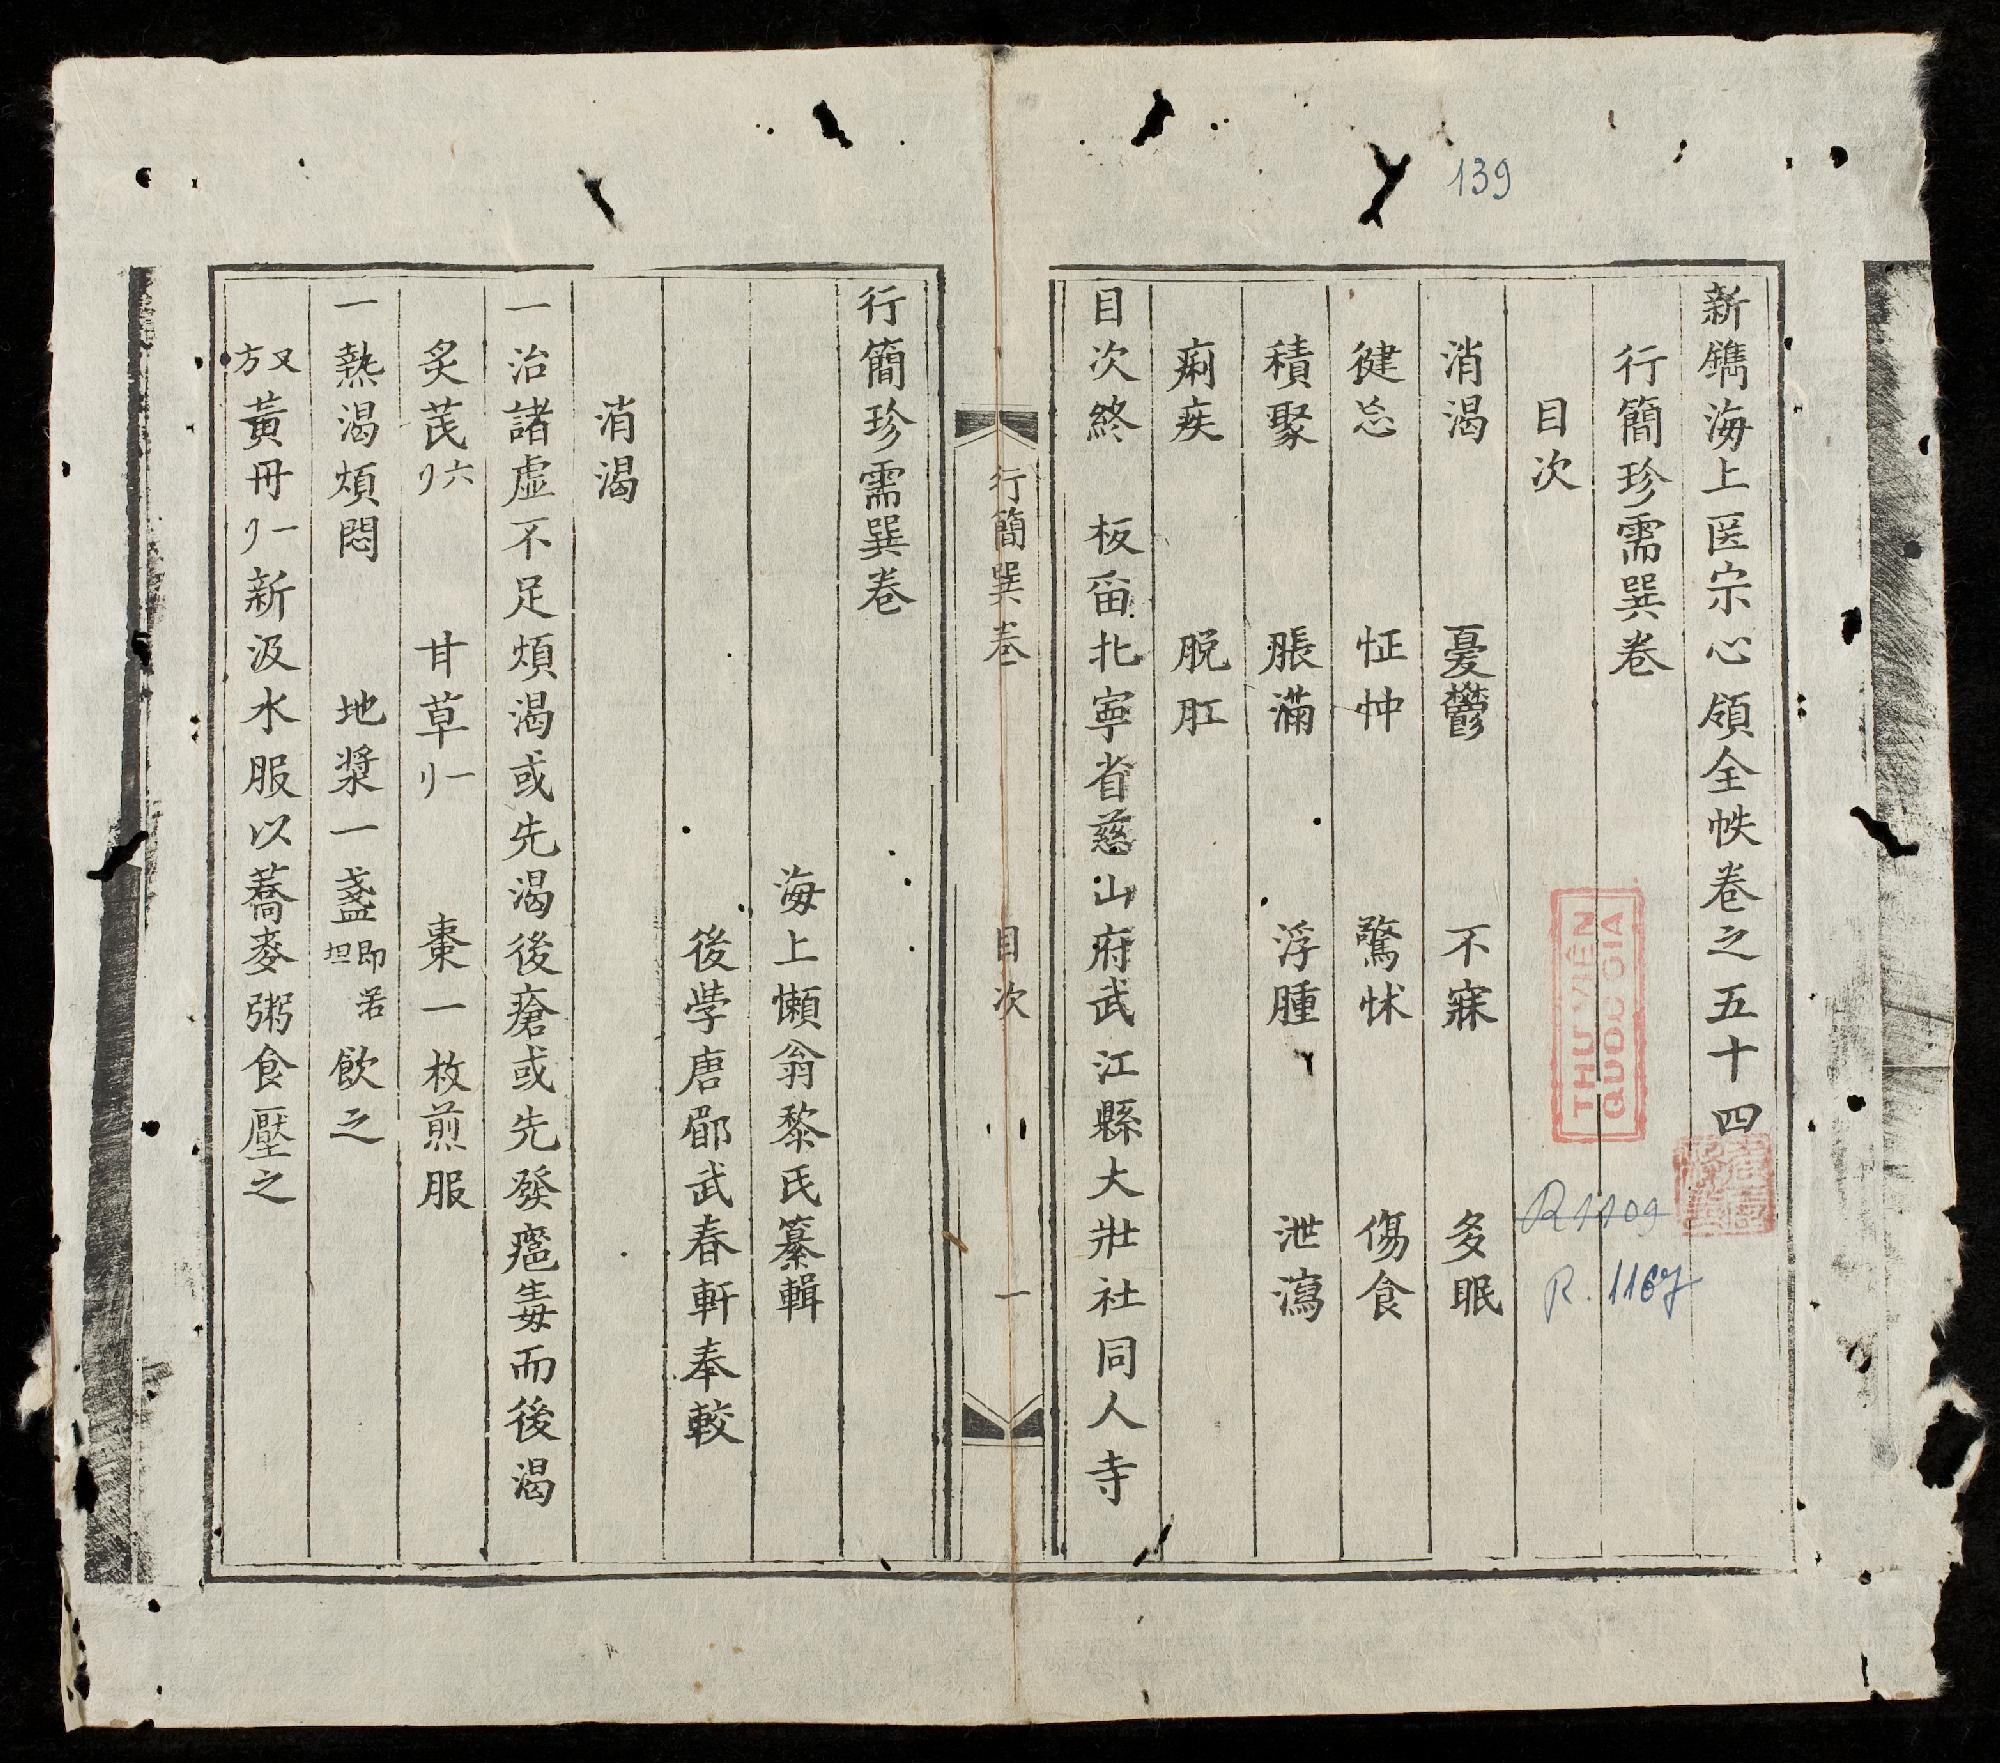 139
新鐫海上医宗心領全帙卷之五十四
行簡珍需巽卷
目次
消渴 憂鬱 不寐 多眠
健忘 怔忡 驚怵 傷食
積聚 脹滿 浮腫 泄瀉
痢疾 脫肛
目次終 板留北寧省慈山府武江縣大壯社同人寺
THƯ VIỆN
QUỐC GIA
R1109
R. 1167
行簡巽卷 目次 一
行簡珍需巽卷
海上懶翁黎氏纂輯
後學唐郿武春軒奉較
消渴
一治諸虛不足煩渴或先渴後瘡或先發瘟毒而後渴
炙芪六刂 甘草一刂 棗一枚煎服
一熱渴煩悶 地漿一盞即坦若飲之
又方黃丹一刂新汲水服以蕎麥粥食壓之